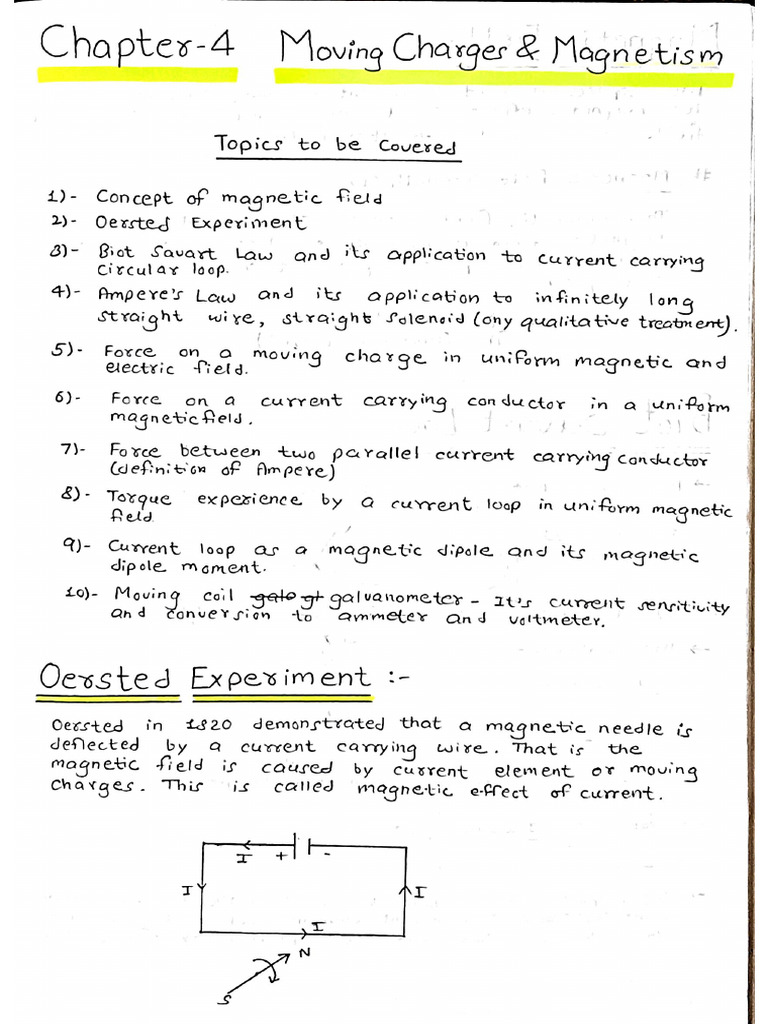 Chapter-4 Moving Charges & Magnetism
Topics to be Covered
1)- Concept of magnetic field
2)- Oersted Experiment
3)- Biot Savart Law and its application to current carrying
circular loop.
4)- Ampere's Law and its application to infinitely long
straight wire, straight solenoid (ony qualitative treatment).
5)- Force on a moving charge in uniform magnetic and
electric field.
6)- Force on a current carrying conductor in a uniform
magnetic field.
7)- Force between two parallel current carrying conductor
(definition of Ampere)
8)- Torque experience by a current loop in uniform magnetic
field.
9)- Current loop as a magnetic dipole and its magnetic
dipole moment.
10)- Moving coil galo gl galvanometer - It's current sensitivity
and conversion to ammeter and voltmeter.
Oersted Experiment :-
Oersted in 1820 demonstrated that a magnetic needle is
deflected by a current carrying wire. That is the
magnetic field is caused by current element or moving
charges. This is called magnetic effect of current.
I + -
I I
I
N
S